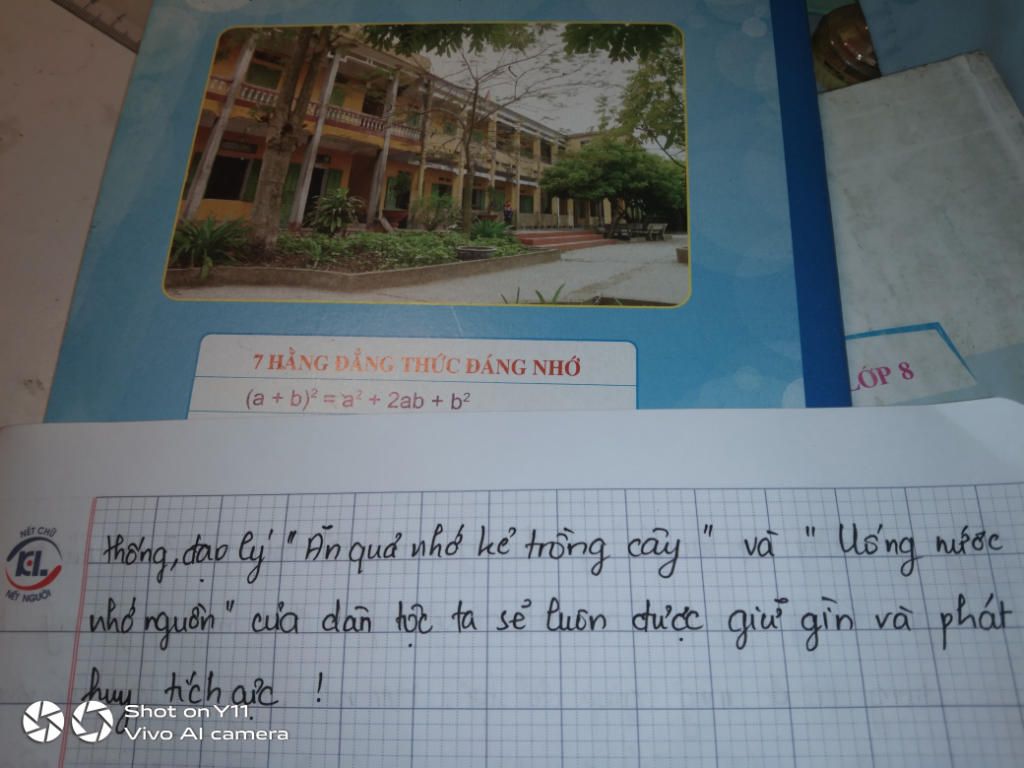 7 HẰNG ĐẲNG THỨC ĐÁNG NHỚ
(a + b)² = a² + 2ab + b²
LỚP 8
NÉT CHỮ
KL
NẾT NGƯỜI
thống, đạo lý "Ăn quả nhớ kẻ trồng cây" và "Uống nước
nhớ nguồn" của dân tộc ta sẽ luôn được giữ gìn và phát
huy tích cực !
Shot on Y11
Vivo AI camera